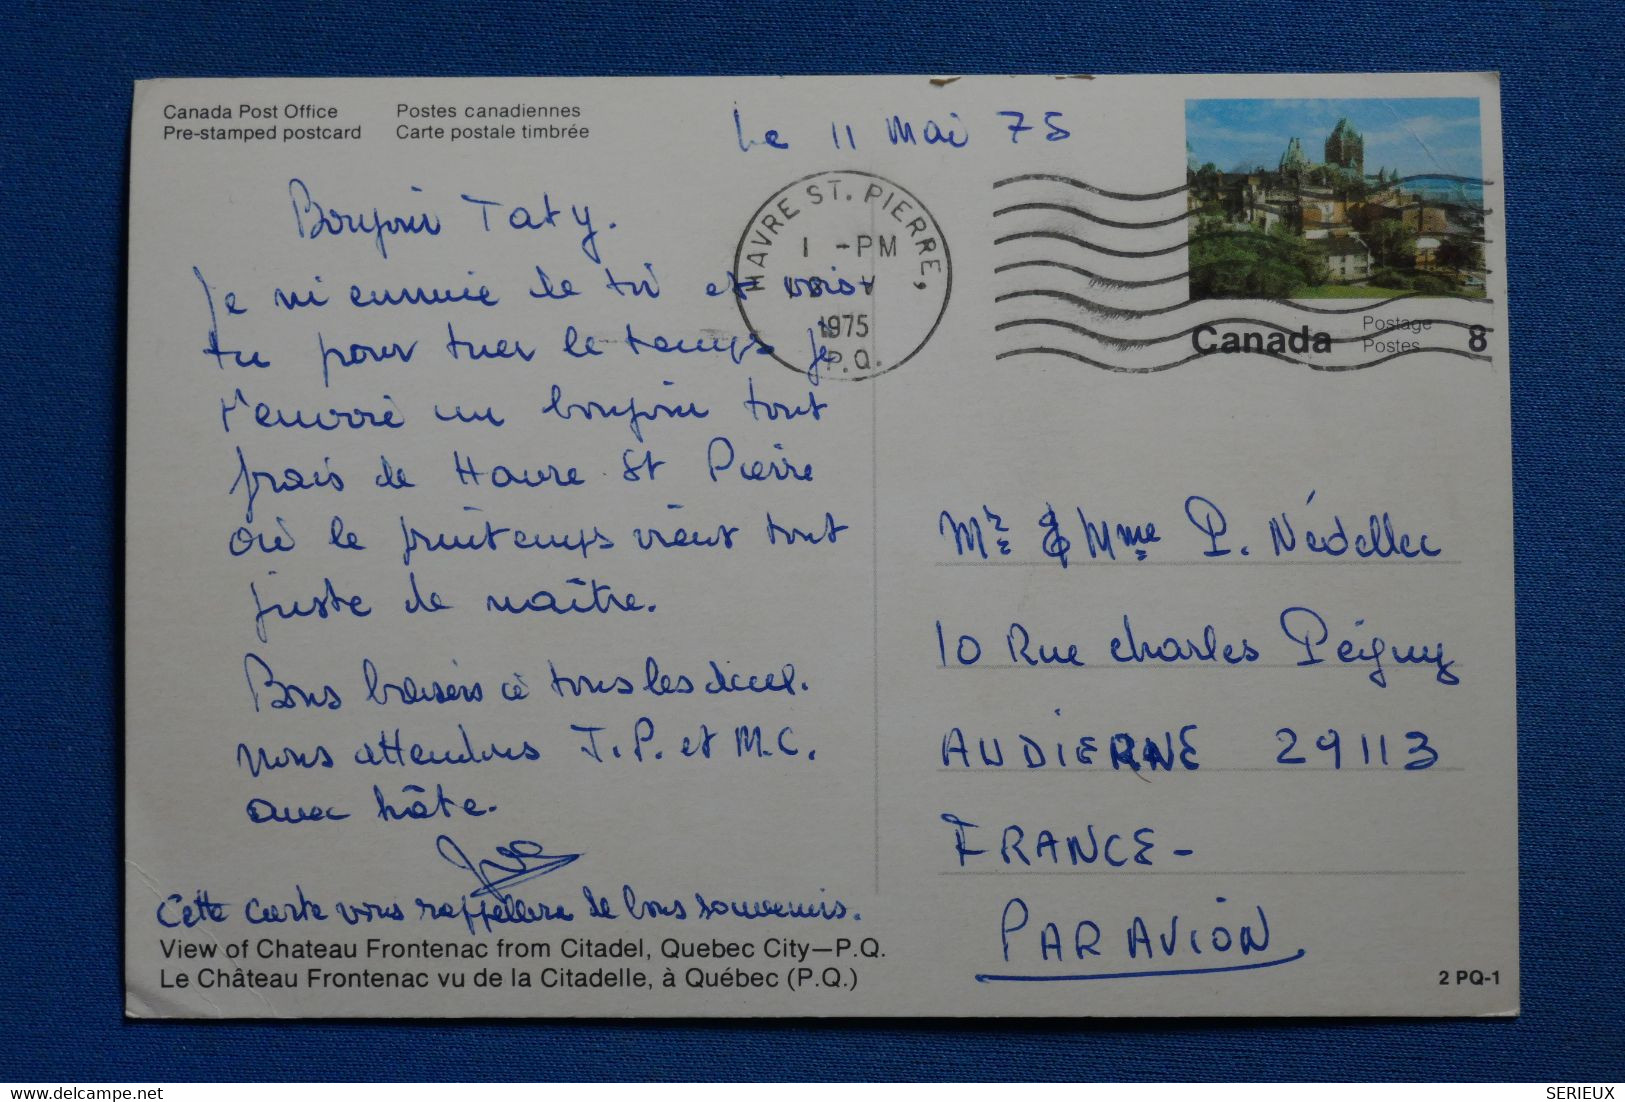 Canada Post Office
Pre-stamped postcard
Postes canadiennes
Carte postale timbrée
Le 11 Mai 75
HAVRE ST. PIERRE,
1 -PM
V
1975
P.Q.
Canada
Postage
Postes
8
Bonjour Taty.
Je m'ennuie de toi et vois-
tu pour tuer le temps je
t'envoie un bonjour tout
frais de Havre St Pierre
où le printemps vient tout
juste de naître.
Bons baisers à tous les deux.
Nous attendons J.P. et M.C.
avec hâte.
Cette carte vous rappellera de bons souvenirs.
View of Chateau Frontenac from Citadel, Quebec City—P.Q.
Le Château Frontenac vu de la Citadelle, à Québec (P.Q.)
Mr & Mme P. Nédellec
10 Rue Charles Péiguy
AUDIERNE 29113
FRANCE-
PAR AVION
2 PQ-1
delcampe.net
SERIEUX